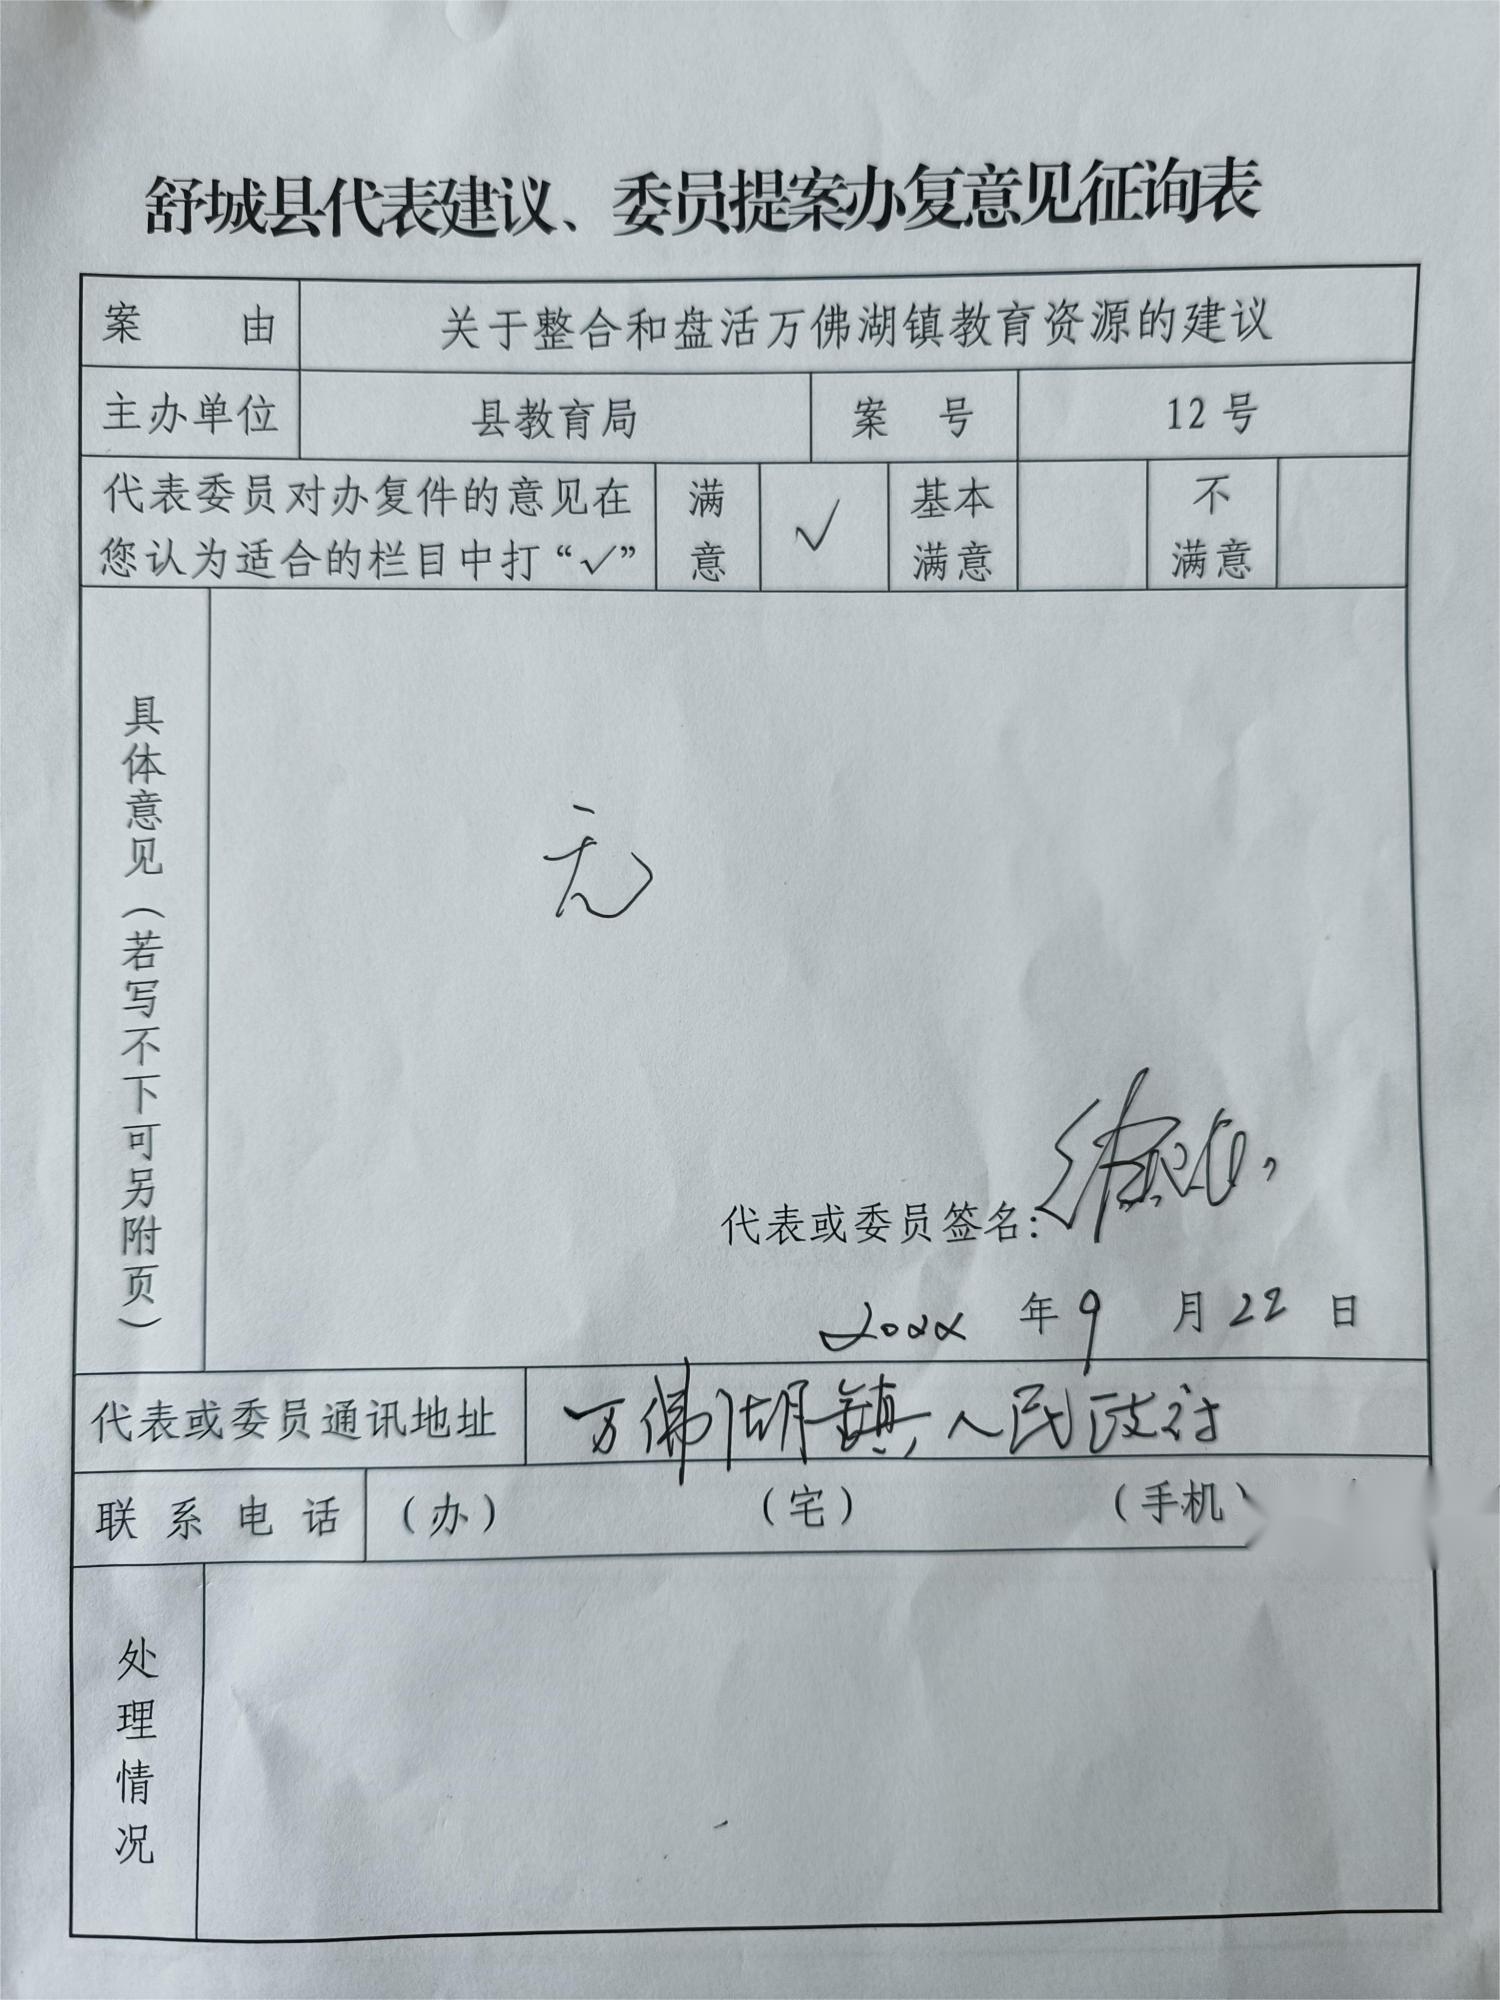 舒城县代表建议、委员提案办复意见征询表
案由 关于整合和盘活万佛湖镇教育资源的建议
主办单位 县教育局 案号 12号
代表委员对办复件的意见在您认为适合的栏目中打“√” 满意 √ 基本满意 不满意
具体意见（若写不下可另附页）
无
代表或委员签名：
2022 年 9 月 22 日
代表或委员通讯地址 万佛湖镇人民政府
联系电话 （办） （宅） （手机）
处理情况